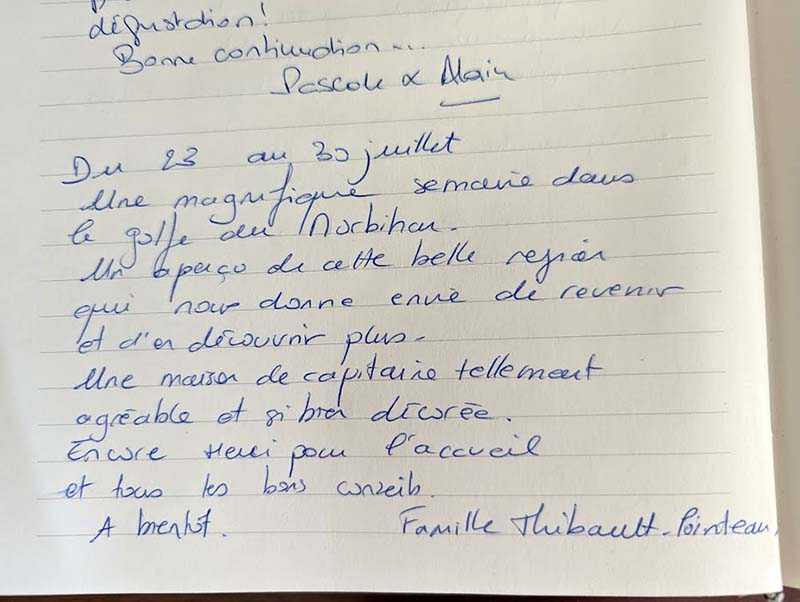 dégustation!
Bonne continuation...
Pascale & Alain
Du 23 au 30 juillet
Une magnifique semaine dans
le golfe du Morbihan.
Un aperço de cette belle région
qui nous donne envie de revenir
et d'en découvrir plus.
Une maison de capitaine tellement
agréable et si bien décorée.
Encore Merci pour l'accueil
et tous les bons conseils.
A bientôt.
Famille Thibault-Pointeau.